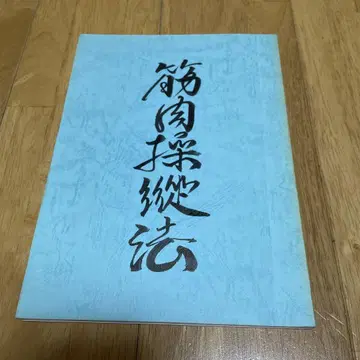 筋肉操縦法